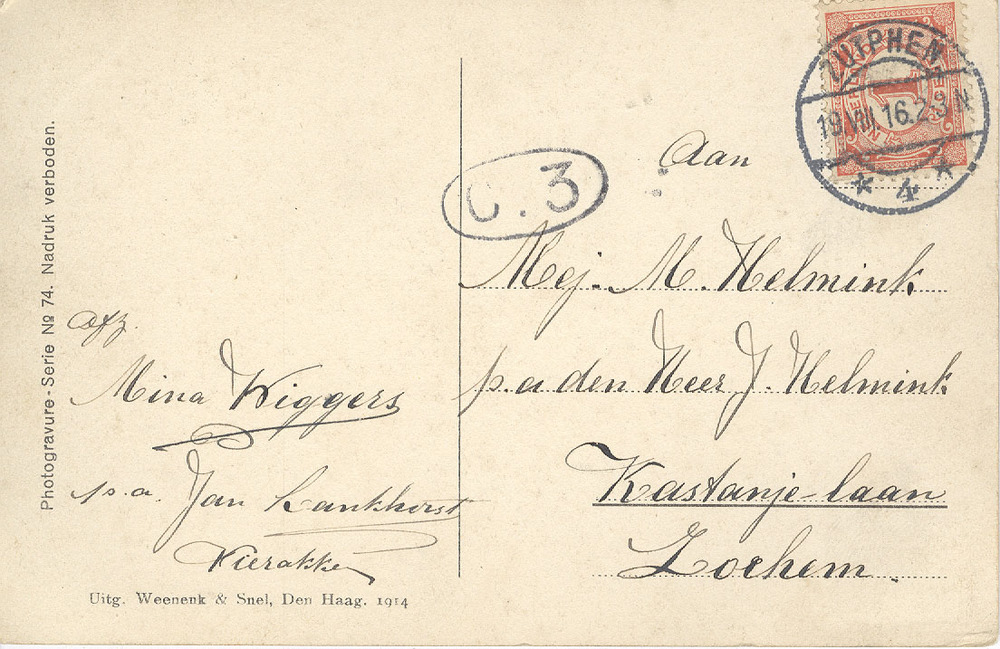 Photogravure-Serie No 74. Nadruk verboden.
Afz.
Mina Wiggers
p.a. Jan Lankhorst
Vierakker
Uitg. Weenenk & Snel, Den Haag. 1914
C.3
ZUTPHEN
19 VIII 16.2-3 N
* 4 *
1
Aan
Mej. M. Helmink
p.a den Heer J. Helmink
Kastanje-laan
Lochem.